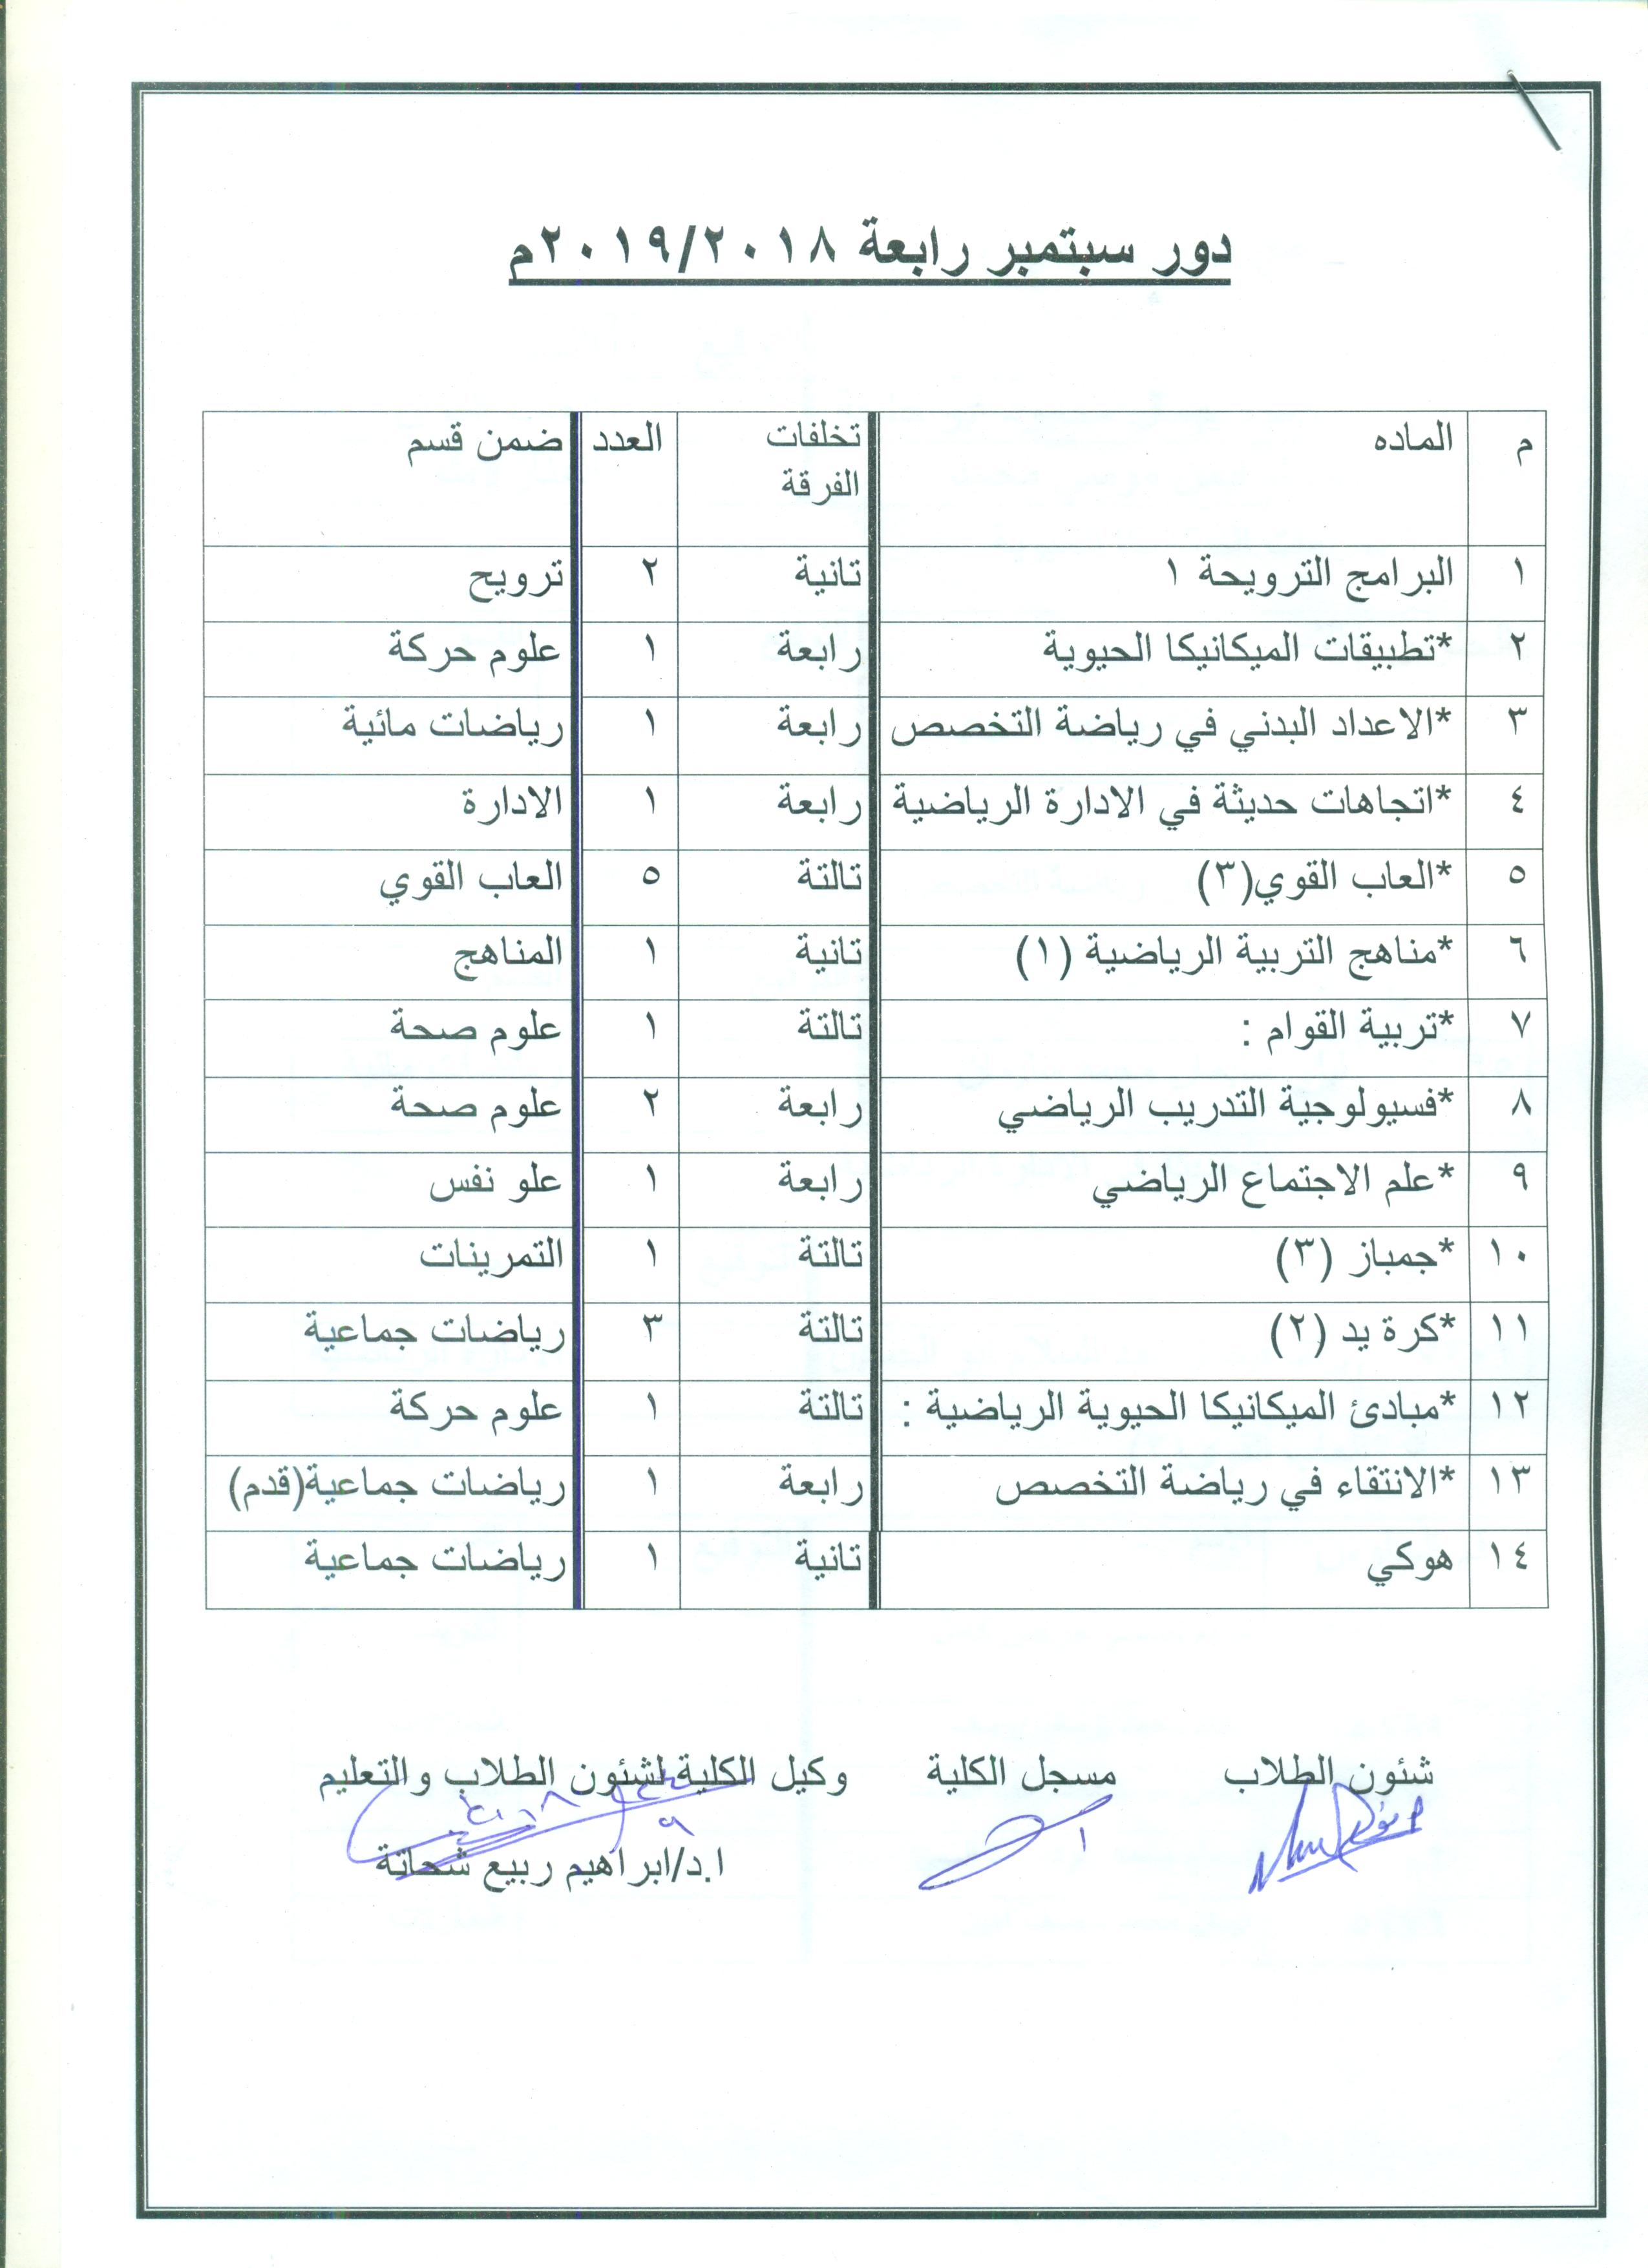 دور سبتمبر رابعة ٢٠١٩/٢٠١٨م
م الماده تخلفات الفرقة العدد ضمن قسم
١ البرامج الترويحة ١ تانية ٢ ترويح
٢ *تطبيقات الميكانيكا الحيوية رابعة ١ علوم حركة
٣ *الاعداد البدني في رياضة التخصص رابعة ١ رياضات مائية
٤ *اتجاهات حديثة في الادارة الرياضية رابعة ١ الادارة
٥ *العاب القوي(٣) تالتة ٥ العاب القوي
٦ *مناهج التربية الرياضية (١) تانية ١ المناهج
٧ *تربية القوام : تالتة ١ علوم صحة
٨ *فسيولوجية التدريب الرياضي رابعة ٢ علوم صحة
٩ *علم الاجتماع الرياضي رابعة ١ علو نفس
١٠ *جمباز (٣) تالتة ١ التمرينات
١١ *كرة يد (٢) تالتة ٣ رياضات جماعية
١٢ *مبادئ الميكانيكا الحيوية الرياضية : تالتة ١ علوم حركة
١٣ *الانتقاء في رياضة التخصص رابعة ١ رياضات جماعية(قدم)
١٤ هوكي تانية ١ رياضات جماعية
شئون الطلاب مسجل الكلية وكيل الكلية لشئون الطلاب والتعليم
ا.د/ابراهيم ربيع شحاتة